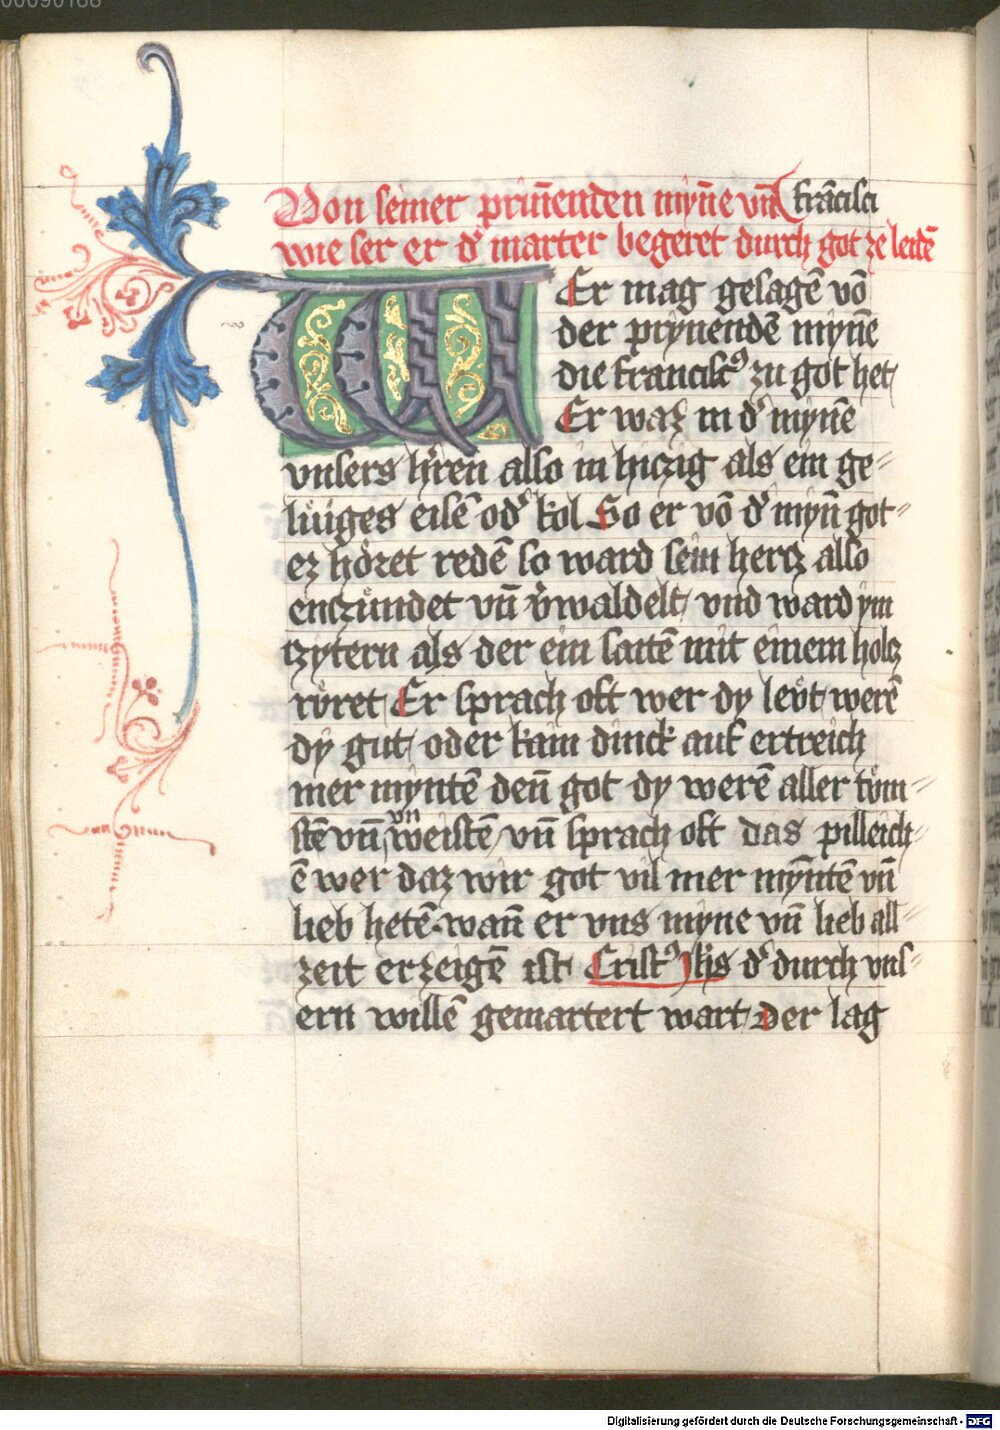 00090168
Von seiner prin̄enden myn̄e vn̄ francisci
wie ser er dʼ marter begeret durch got ze leidē
WEr mag gesagē vō
der prynendē myn̄e
die franciscꝰ zu got het
Er waz in dʼ myn̄e
vnsers hʼren also in hiczig als ein ge⸗
luͤiges eisē odʼ kol So er vō dʼ myn̄ got⸗
ez hoͤret redē so ward sein hertz also
enczuͤndet vn̄ vʼwaldelt vnd ward ym
tzytern als der ein saitē mit einem holtz
ruͤret Er sprach oft wer dy leuͤt werē
dy gut oder kain dinck auf ertreich
mer myntē den̄ got dy werē aller tuͤm⸗
stē vn̄ vn weistē vn̄ sprach oft das pilleich⸗
ē wer daz wir got vil mer myn̄tē vn̄
lieb hetē wan̄ er vns myne vn̄ lieb all⸗
zeit erzeigē ist Cristꝰ Jhs dʼ durch vns⸗
ern willē gemartert wart der lag
Digitalisierung gefördert durch die Deutsche Forschungsgemeinschaft - DFG